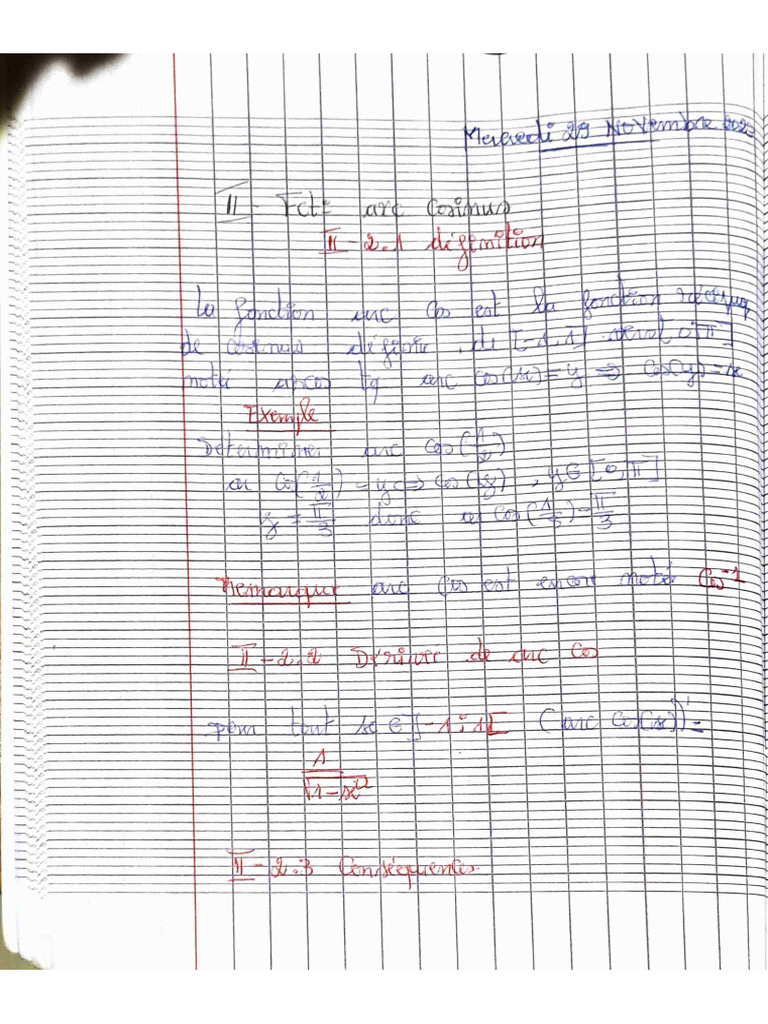 Mercredi 29 Novembre 2023
II - Fct: arc Cosinus
II-2.1 définition
La fonction arc Cos est la fonction
de définie de [-1,1] 0 π]
noté arcos tq arc cos(x)=y => cos(y)=x
Exemple
Determiner arc cos(1/2)
ar Cos(1/2)=y <=> cos(y) , y∈[0,π]
y = π/3 donc ar cos(1/2)=π/3
Remarque arc Cos est encore noté Cos⁻¹
II-2.2 Dériver de arc cos
pour tout x ∈ ]-1;1[ (arc Cos(x))'=
1/√1-x²
II-2.3 Conséquences.